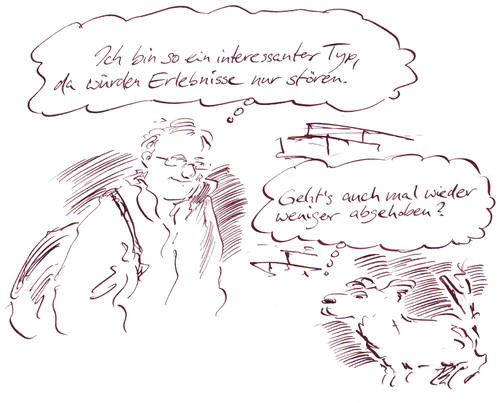 Ich bin so ein interessanter Typ,
da würden Erlebnisse nur stören.
Geht's auch mal wieder
weniger abgehoben?